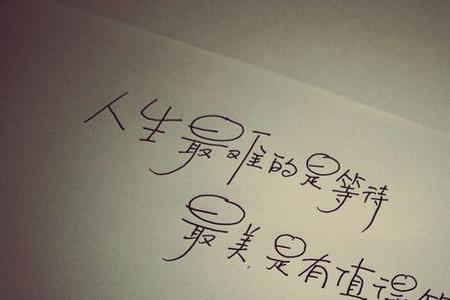 人生最难的是等待
最美是有值得等